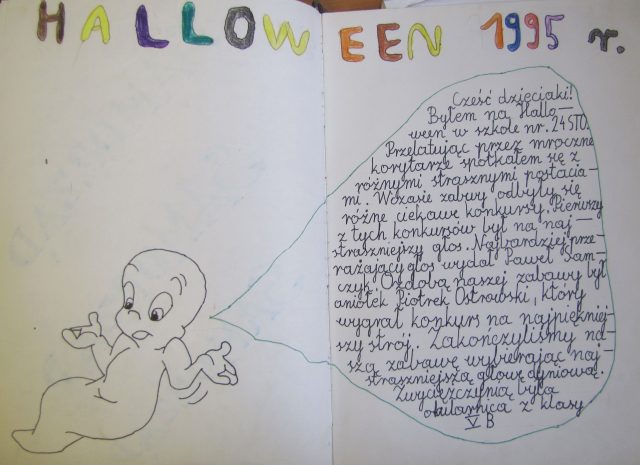 HALLOWEEN 1995 r.
Cześć dzieciaki!
Byłem na Hallo-
ween w szkole nr. 24 STO.
Przelatując przez mroczne
korytarze spotkałem się z
różnymi strasznymi postacia-
mi. Wczasie zabawy odbyły się
różne ciekawe konkursy. Pierwszy
z tych konkursów był na naj-
straszniejszy głos. Najbardziej prze-
rażający głos wydał Paweł Sam-
czyk. Ozdobą naszej zabawy był
aniołek Piotrek Ostrowski, który
wygrał konkurs na najpiękniej-
szy strój. Zakończyliśmy na-
szą zabawę wybierając naj-
straszniejszą głowę dyniową.
Zwyciężczynią była
okularnica z klasy
V B